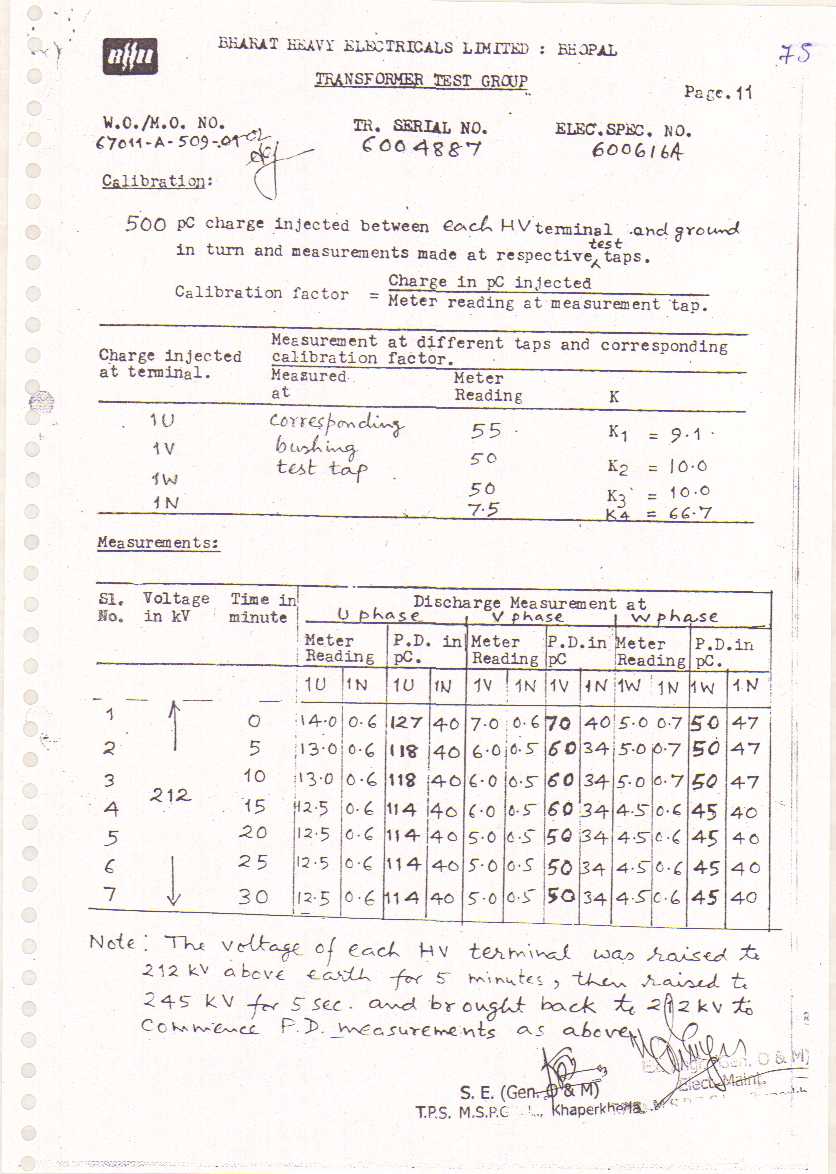 75
BHARAT HEAVY ELECTRICALS LIMITED : BHOPAL
TRANSFORMER TEST GROUP
Page.11
W.O./M.O. NO. TR. SERIAL NO. ELEC.SPEC. NO.
67011-A-509-01 02 6004887 600616A
Calibration:
500 pC charge injected between each HV terminal and ground
in turn and measurements made at respective test taps.
Calibration factor = Charge in pC injected
Meter reading at measurement tap.
Charge injected at terminal. Measurement at different taps and corresponding calibration factor.
Measured at Meter Reading K
1U corresponding 55 K1 = 9.1
1V bushing 50 K2 = 10.0
1W test tap 50 K3 = 10.0
1N 7.5 K4 = 66.7
Measurements:
Sl. No. Voltage in kV Time in minute Discharge Measurement at
U phase V phase W phase
Meter Reading P.D. in pC. Meter Reading P.D.in pC Meter Reading P.D.in pC.
1U 1N 1U 1N 1V 1N 1V 1N 1W 1N 1W 1N
1 0 14.0 0.6 127 40 7.0 0.6 70 40 5.0 0.7 50 47
2 5 13.0 0.6 118 40 6.0 0.5 60 34 5.0 0.7 50 47
3 10 13.0 0.6 118 40 6.0 0.5 60 34 5.0 0.7 50 47
4 212 15 12.5 0.6 114 40 6.0 0.5 60 34 4.5 0.6 45 40
5 20 12.5 0.6 114 40 5.0 0.5 50 34 4.5 0.6 45 40
6 25 12.5 0.6 114 40 5.0 0.5 50 34 4.5 0.6 45 40
7 30 12.5 0.6 114 40 5.0 0.5 50 34 4.5 0.6 45 40
Note: The voltage of each HV terminal was raised to
212 kV above earth for 5 minutes, then raised to
245 kV for 5 sec. and brought back to 212 kV to
Commence P.D. measurements as above
S. E. (Gen. O & M)
T.P.S. M.S.P.G Khaperkheda.
Gen. O & M)
Elect. Maint.